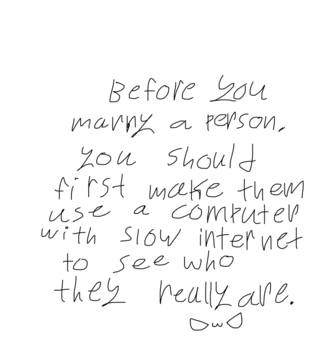 Before you
marry a person,
you should
first make them
use a computer
with slow internet
to see who
they really are.
OwO